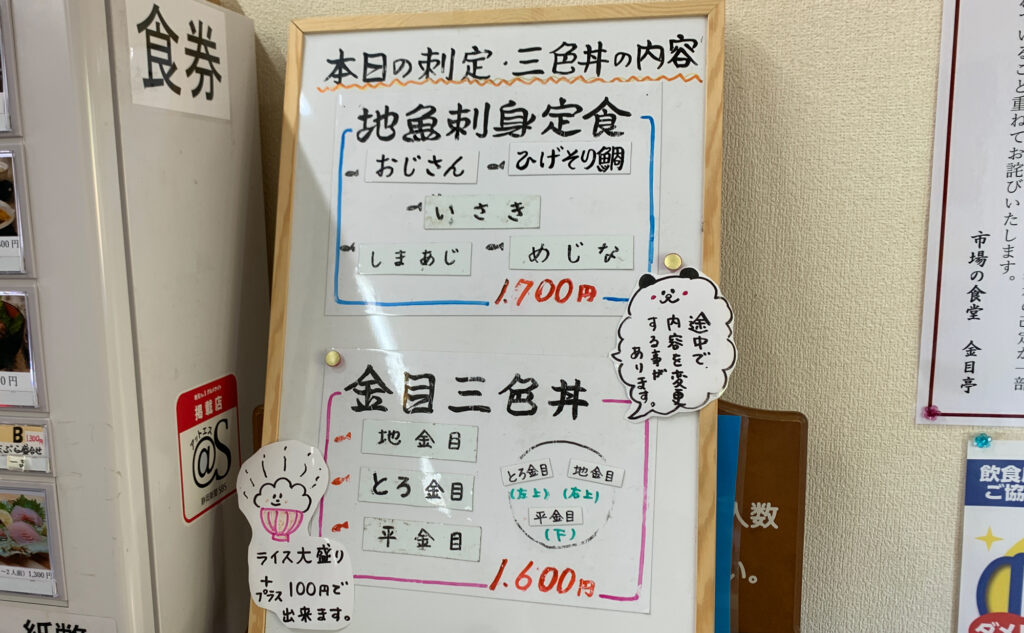 食券
本日の刺定・三色丼の内容
地魚刺身定食
おじさん
ひげそり鯛
いさき
しまあじ
めじな
1.700円
途中で
内容を変更
する事が
あります。
金目三色丼
地金目
とろ金目
平金目
とろ金目
(左上)
地金目
(右上)
平金目
(下)
1.600円
ライス大盛り
+
プラス
100円で
出来ます。
掲載店
アットエス
@S
静岡新聞SBS
B
1,300円
～2人前) 1,300円
ていること重ねてお詫びいたします。
市場の食堂 金目亭
人数
い。
飲食店
ご協
ダメ